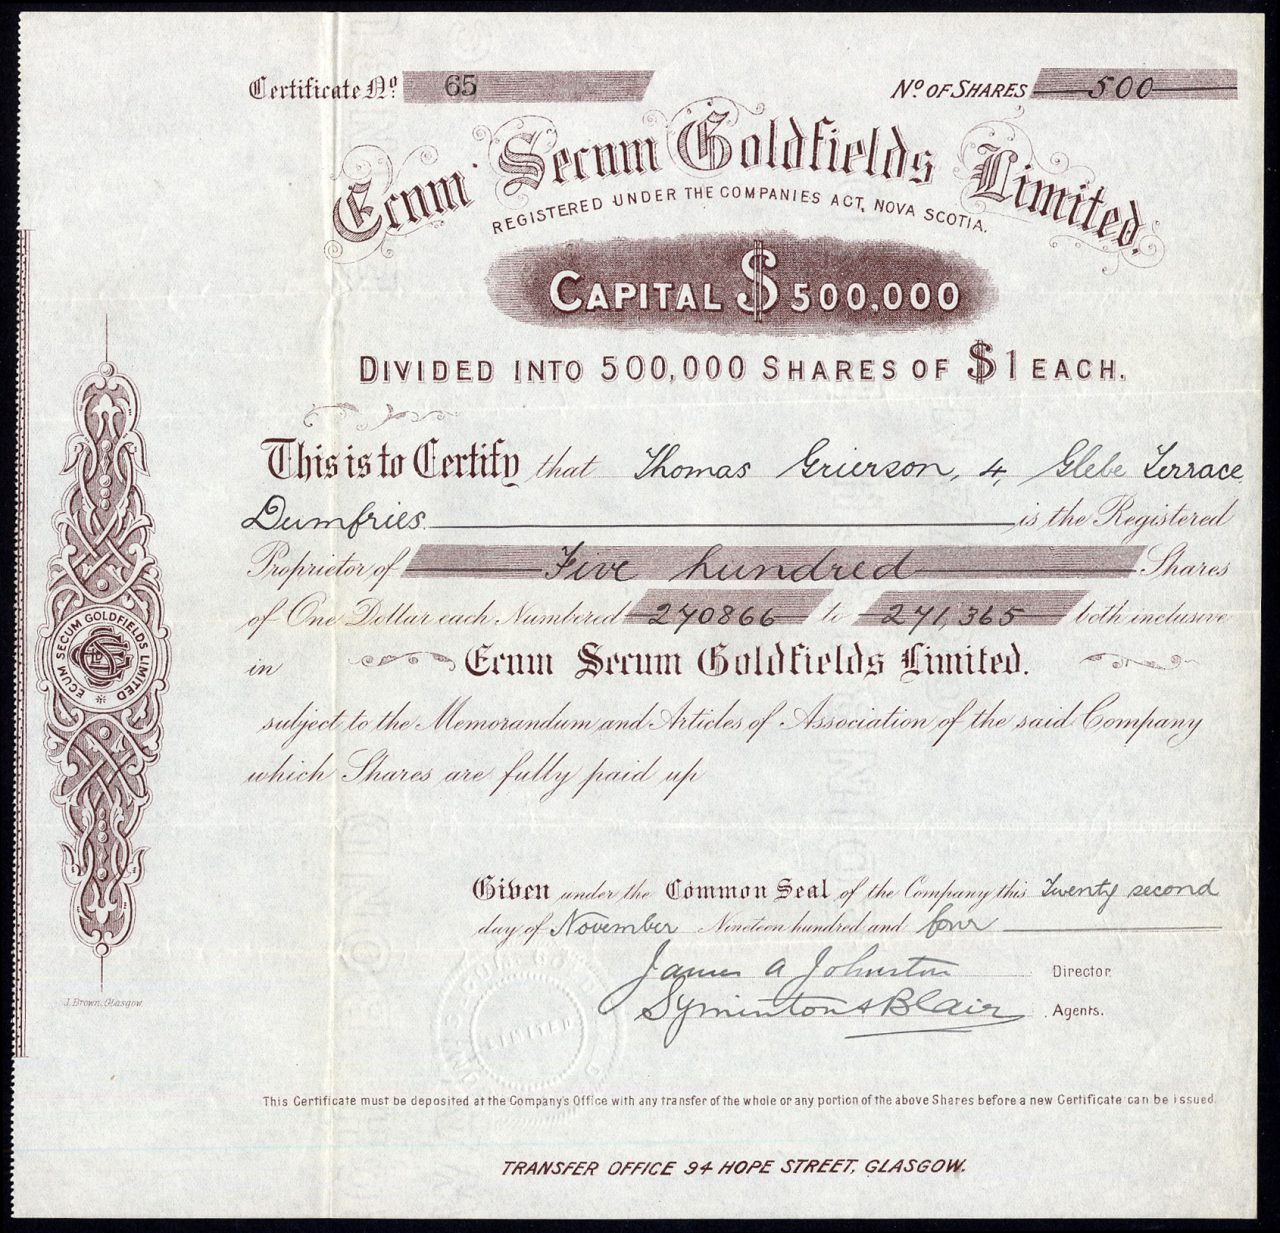 Certificate Nº 65
Nº OF SHARES 500
Ecum Secum Goldfields Limited.
REGISTERED UNDER THE COMPANIES ACT, NOVA SCOTIA.
CAPITAL $500,000
DIVIDED INTO 500,000 SHARES OF $1 EACH.
This is to Certify that Thomas Grierson, 4, Glebe Terrace
Dumfries is the Registered
Proprietor of Five hundred Shares
of One Dollar each Numbered 270866 to 271,365 both inclusive
in Ecum Secum Goldfields Limited.
subject to the Memorandum and Articles of Association of the said Company
which Shares are fully paid up
ECUM SECUM GOLDFIELDS LIMITED
Given under the Common Seal of the Company this Twenty second
day of November Nineteen hundred and four
James A Johnston Director
Syminton & Blair Agents.
J. Brown, Glasgow
LIMITED
This Certificate must be deposited at the Company's Office with any transfer of the whole or any portion of the above Shares before a new Certificate can be issued.
TRANSFER OFFICE 94 HOPE STREET, GLASGOW.